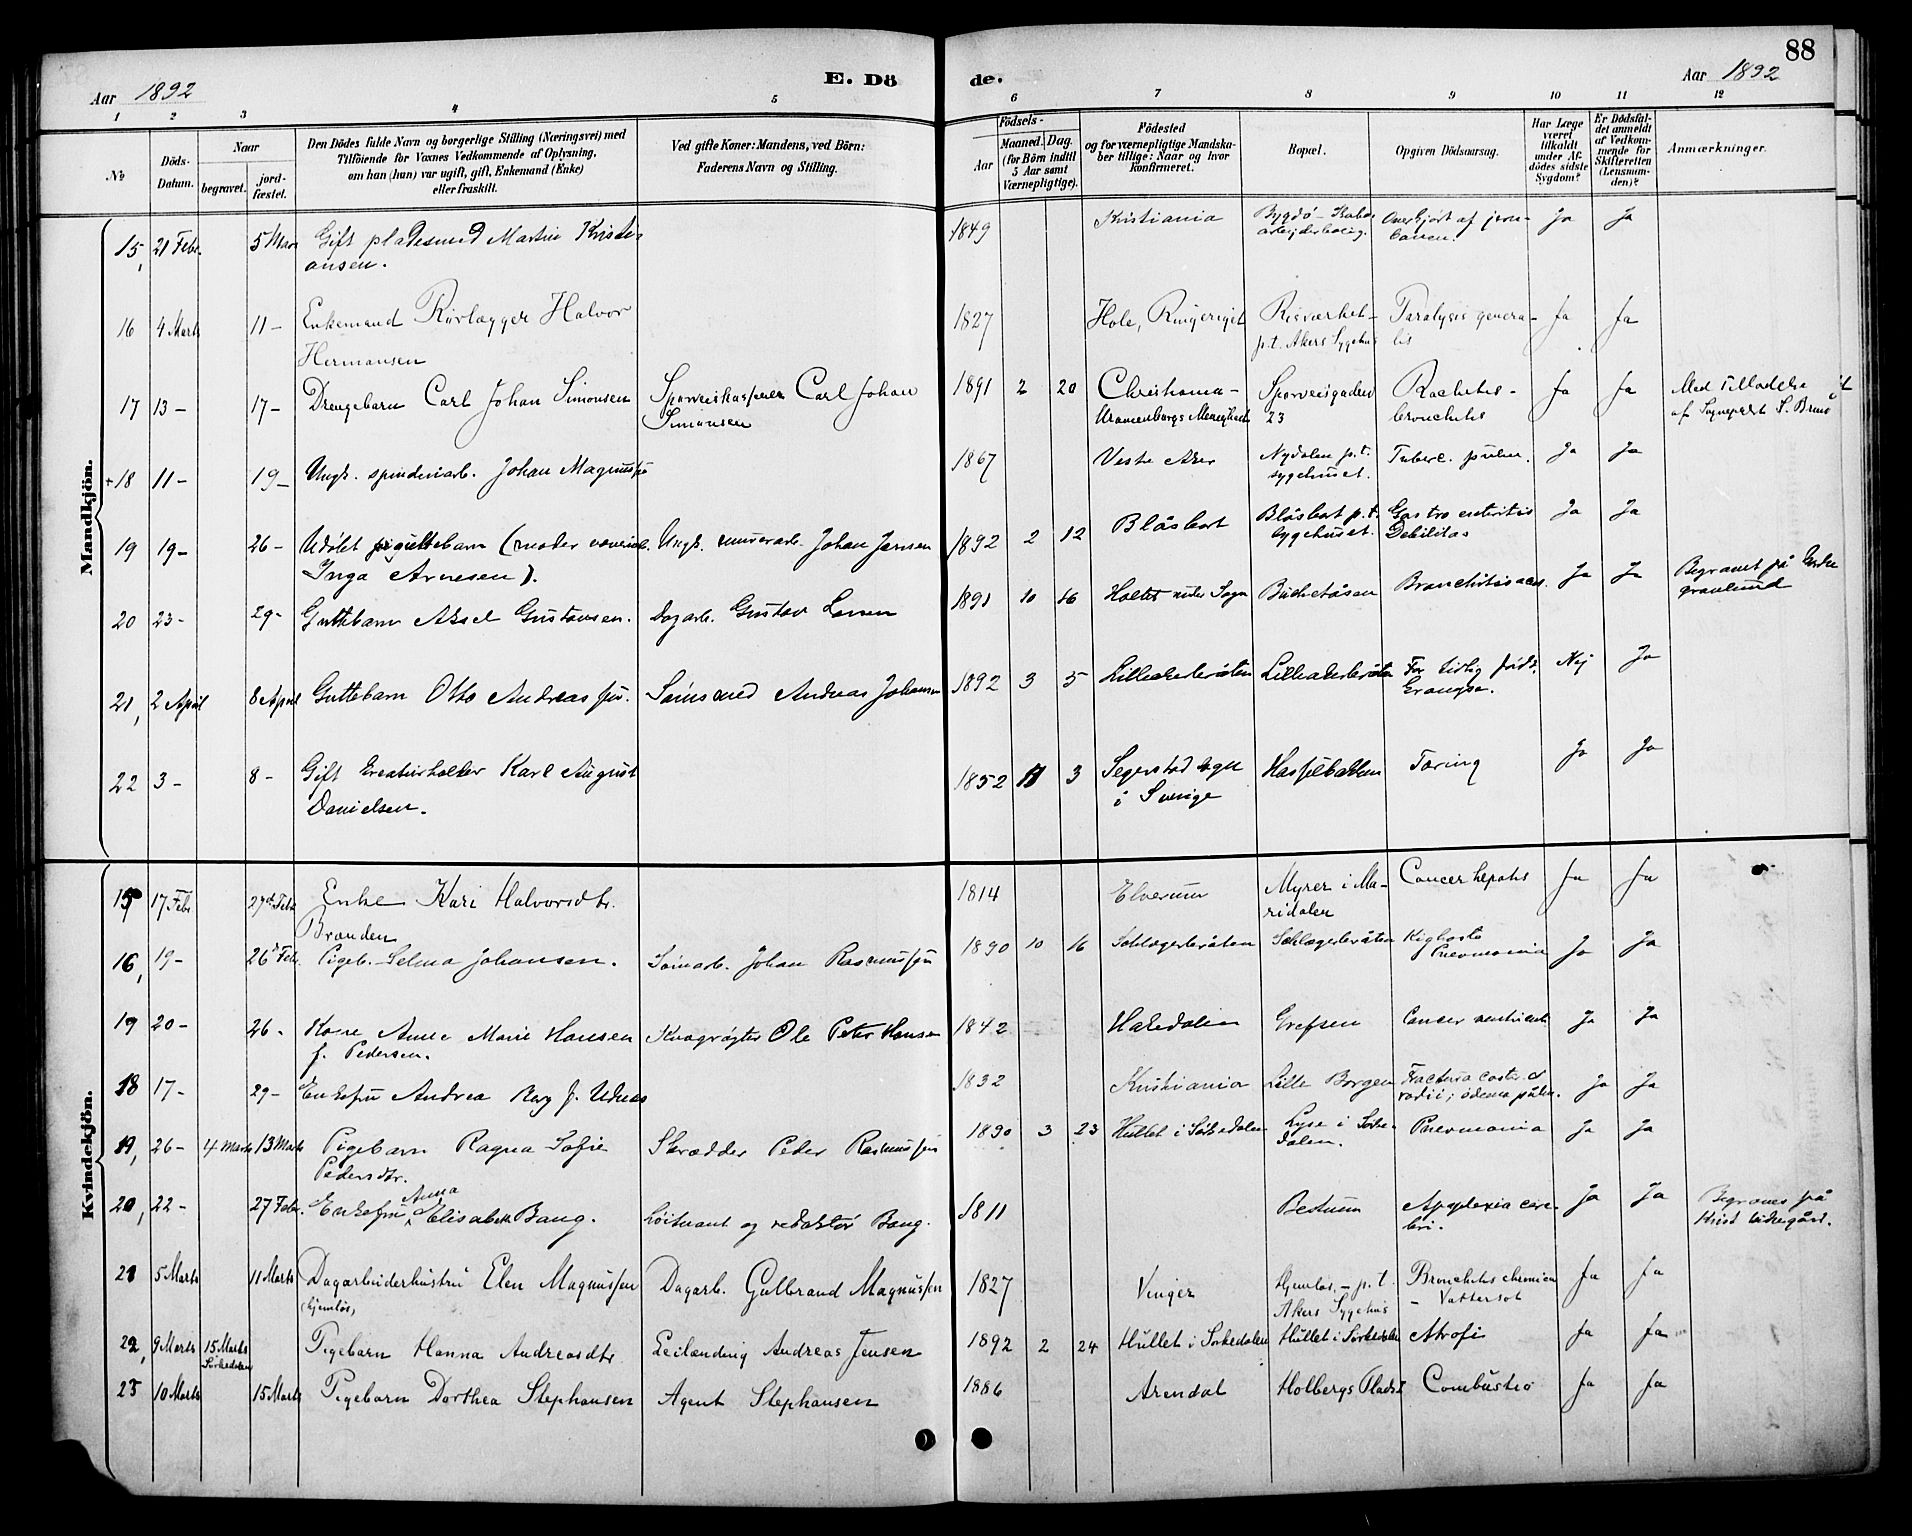 88
Aar 1892
E. Dö
de.
Aar 1892
1 2 3 4 5 6 7 8 9 10 11 12
No
Döds-
Datum.
Naar
begravet.
jord-
fæstet.
Den Dödes fulde Navn og borgerlige Stilling (Næringsvei) med
Tilföiende for Voxnes Vedkommende af Oplysning,
om han (hun) var ugift, gift, Enkemand (Enke)
eller fraskilt.
Ved gifte Koner: Mandens, ved Börn:
Faderens Navn og Stilling.
Födsels-
Aar
Maaned. Dag.
(for Börn indtil
5 Aar samt
Værnepligtige).
Födested
og for værnepligtige Mandska-
ber tillige: Naar og hvor
konfirmeret.
Bopæl.
Opgiven Dödsaarsag.
Har Læge
været
tilkaldt
under Af-
dödes sidste
Sygdom?
Er Dödsfal-
det anmeldt
af Vedkom-
mende for
Skifteretten
(Lensman-
den)?
Anmærkninger.
Mandkjön.
15, 21 Febr. 5 Mars Gift pladesmed Martin Kristi- 1849 Kristiania Bygdö - arbejderbolig. Overkjört af jern- Ja Ja
ansen. banen.
16 4 Marts 11 - Enkemand Rörlægger Halvor 1827 Hole, Ringeriget Risværket - Paralysis genera- Ja Ja
Hermansen p.t. Akers Sygehus lis
17 13 - 17 - Drengebarn Carl Johan Simonsen Sporveiskasserer Carl Johan 1891 2 20 Christiania - Sporveisgaden Rachitis - Ja Ja Med Tilladelse
Simonsen Uranienborgs Menighed 23 bronchitis af Sognepræst S. Bruun
+18 11 - 19 - Ungk. spinderiarb. Johan Magnussen 1867 Vestre Aker Nydalen p.t. Tuberc. pulm. Ja Ja
sygehuset.
19 19 - 26 - Udöbt guttebarn (moder Ungk. murerarb. Johan Jansen 1892 2 12 Blåsbort Blåsbort p.t. Gastro enteritis Ja Ja
Inga Arnesen). sygehuset. Debilitas
20 23 - 29 - Guttebarn Aksel Gustavsen. Dagarb. Gustav Larsen 1891 10 16 Holtet under Sogn Bakkehåsen Bronchitis acut. Ja Ja Begravet på Nordre
gravlund
21, 2 April 8 April Guttebarn Otto Andreassen. Sömsmed Andreas Johansen 1892 3 5 Lilleakerbråten Lilleakerbråten For tidlig födt. Nej Ja
22 3 - 8 - Gift Kreaturhandler Karl August 1852 11 3 Segerstad sogn Hasselbakken Tæring Ja Ja
Danielsen. i Sverige
Kvindekjön.
15 17 Febr 27de Febr Enke Kari Halvorsdtr. 1814 Elverum Myrer i Ma- Cancer hepatis Ja Ja
Brænden ridalen
16, 19 - 26 Febr. Pigeb. Selma Johansen. Sömarb. Johan Rasmussen 1890 10 16 Schlagerbråten Schlagerbråten Kighoste Ja Ja
Pneumonia
19 20 - 26 - Kone Anne Marie Hansen Kvægrögter Ole Peter Hansen 1842 Hakedalen Grefsen Cancer ventriculi Ja Ja
f. Pedersen.
18 17 - 29 - Enkefru Andrea Berg f. Udnæs 1832 Kristiania Lille Borgen Fractura costar. & Ja Ja
radii; ödema pulm.
19, 26 - 4 Marts 13 Marts Pigebarn Ragna Sofie Skrædder Peder Rasmussen 1890 3 23 Hullet i Sörkedalen Lyse i Sörke- Pneumonia Ja Ja
Pedersdtr. dalen.
20, 22 - 27 Febr. Enkefru Anna Elisabeth Bang. Löitnant og redaktör Bang. 1811 Bestum Apoplexia cere- Ja Ja Begraves på
bri. Krist. kirkegård.
21 5 Marts 11 Marts Dagarbeiderhustru Elen Magnussen Dagarb. Gulbrand Magnussen 1827 Vinger Hjemlös, - p.t. Bronchitis chronica Ja Ja
(hjemlös) Akers Sygehus - Vattersot
22, 9 Marts 15 Marts Pigebarn Hanna Andreasdtr Leilænding Andreas Jensen 1892 2 24 Hullet i Sörkedalen Hullet i Sörkedalen Atrofi Ja Ja
Sörkedalen
23 10 Marts 15 Marts Pigebarn Dorthea Stephansen Agent Stephansen 1886 Arendal Holbergs Plads 1 Combustio Ja Ja